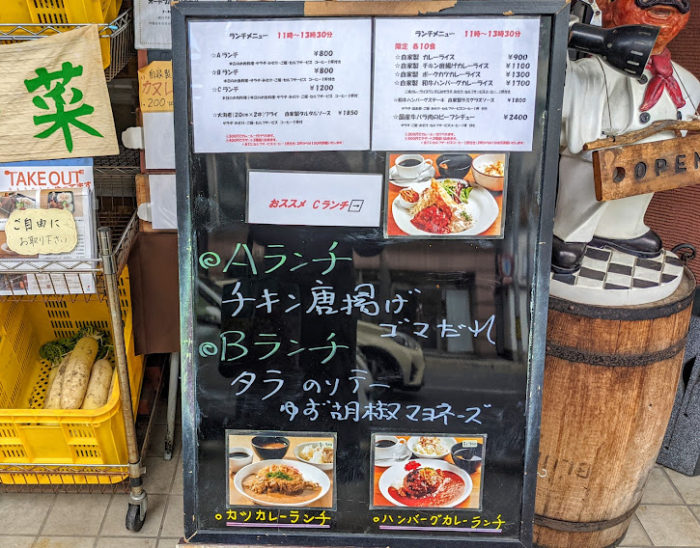 菜
TAKE OUT
ご自由に
お取り下さい
自家製
200円
ランチメニュー 11時~13時30分
☆Aランチ ¥800
☆Bランチ ¥800
☆Cランチ ¥1200
☆大海老(20cm×2本)フライ 自家製タルタルソース ¥1850
ランチメニュー 11時~13時30分
限定 各10食
☆自家製 カレーライス ¥900
☆自家製 チキン唐揚げカレーライス ¥1100
☆自家製 ポークカツカレーライス ¥1300
☆自家製 和牛ハンバーグカレーライス ¥1700
☆和牛ハンバーグステーキ 自家製デミグラスソース ¥1800
☆国産牛バラ肉のビーフシチュー ¥2400
おススメ Cランチ→
Aランチ
チキン唐揚げ
ゴマだれ
Bランチ
タラのソテー
ゆず胡椒マヨネーズ
カツカレーランチ
ハンバーグカレーランチ
OPEN